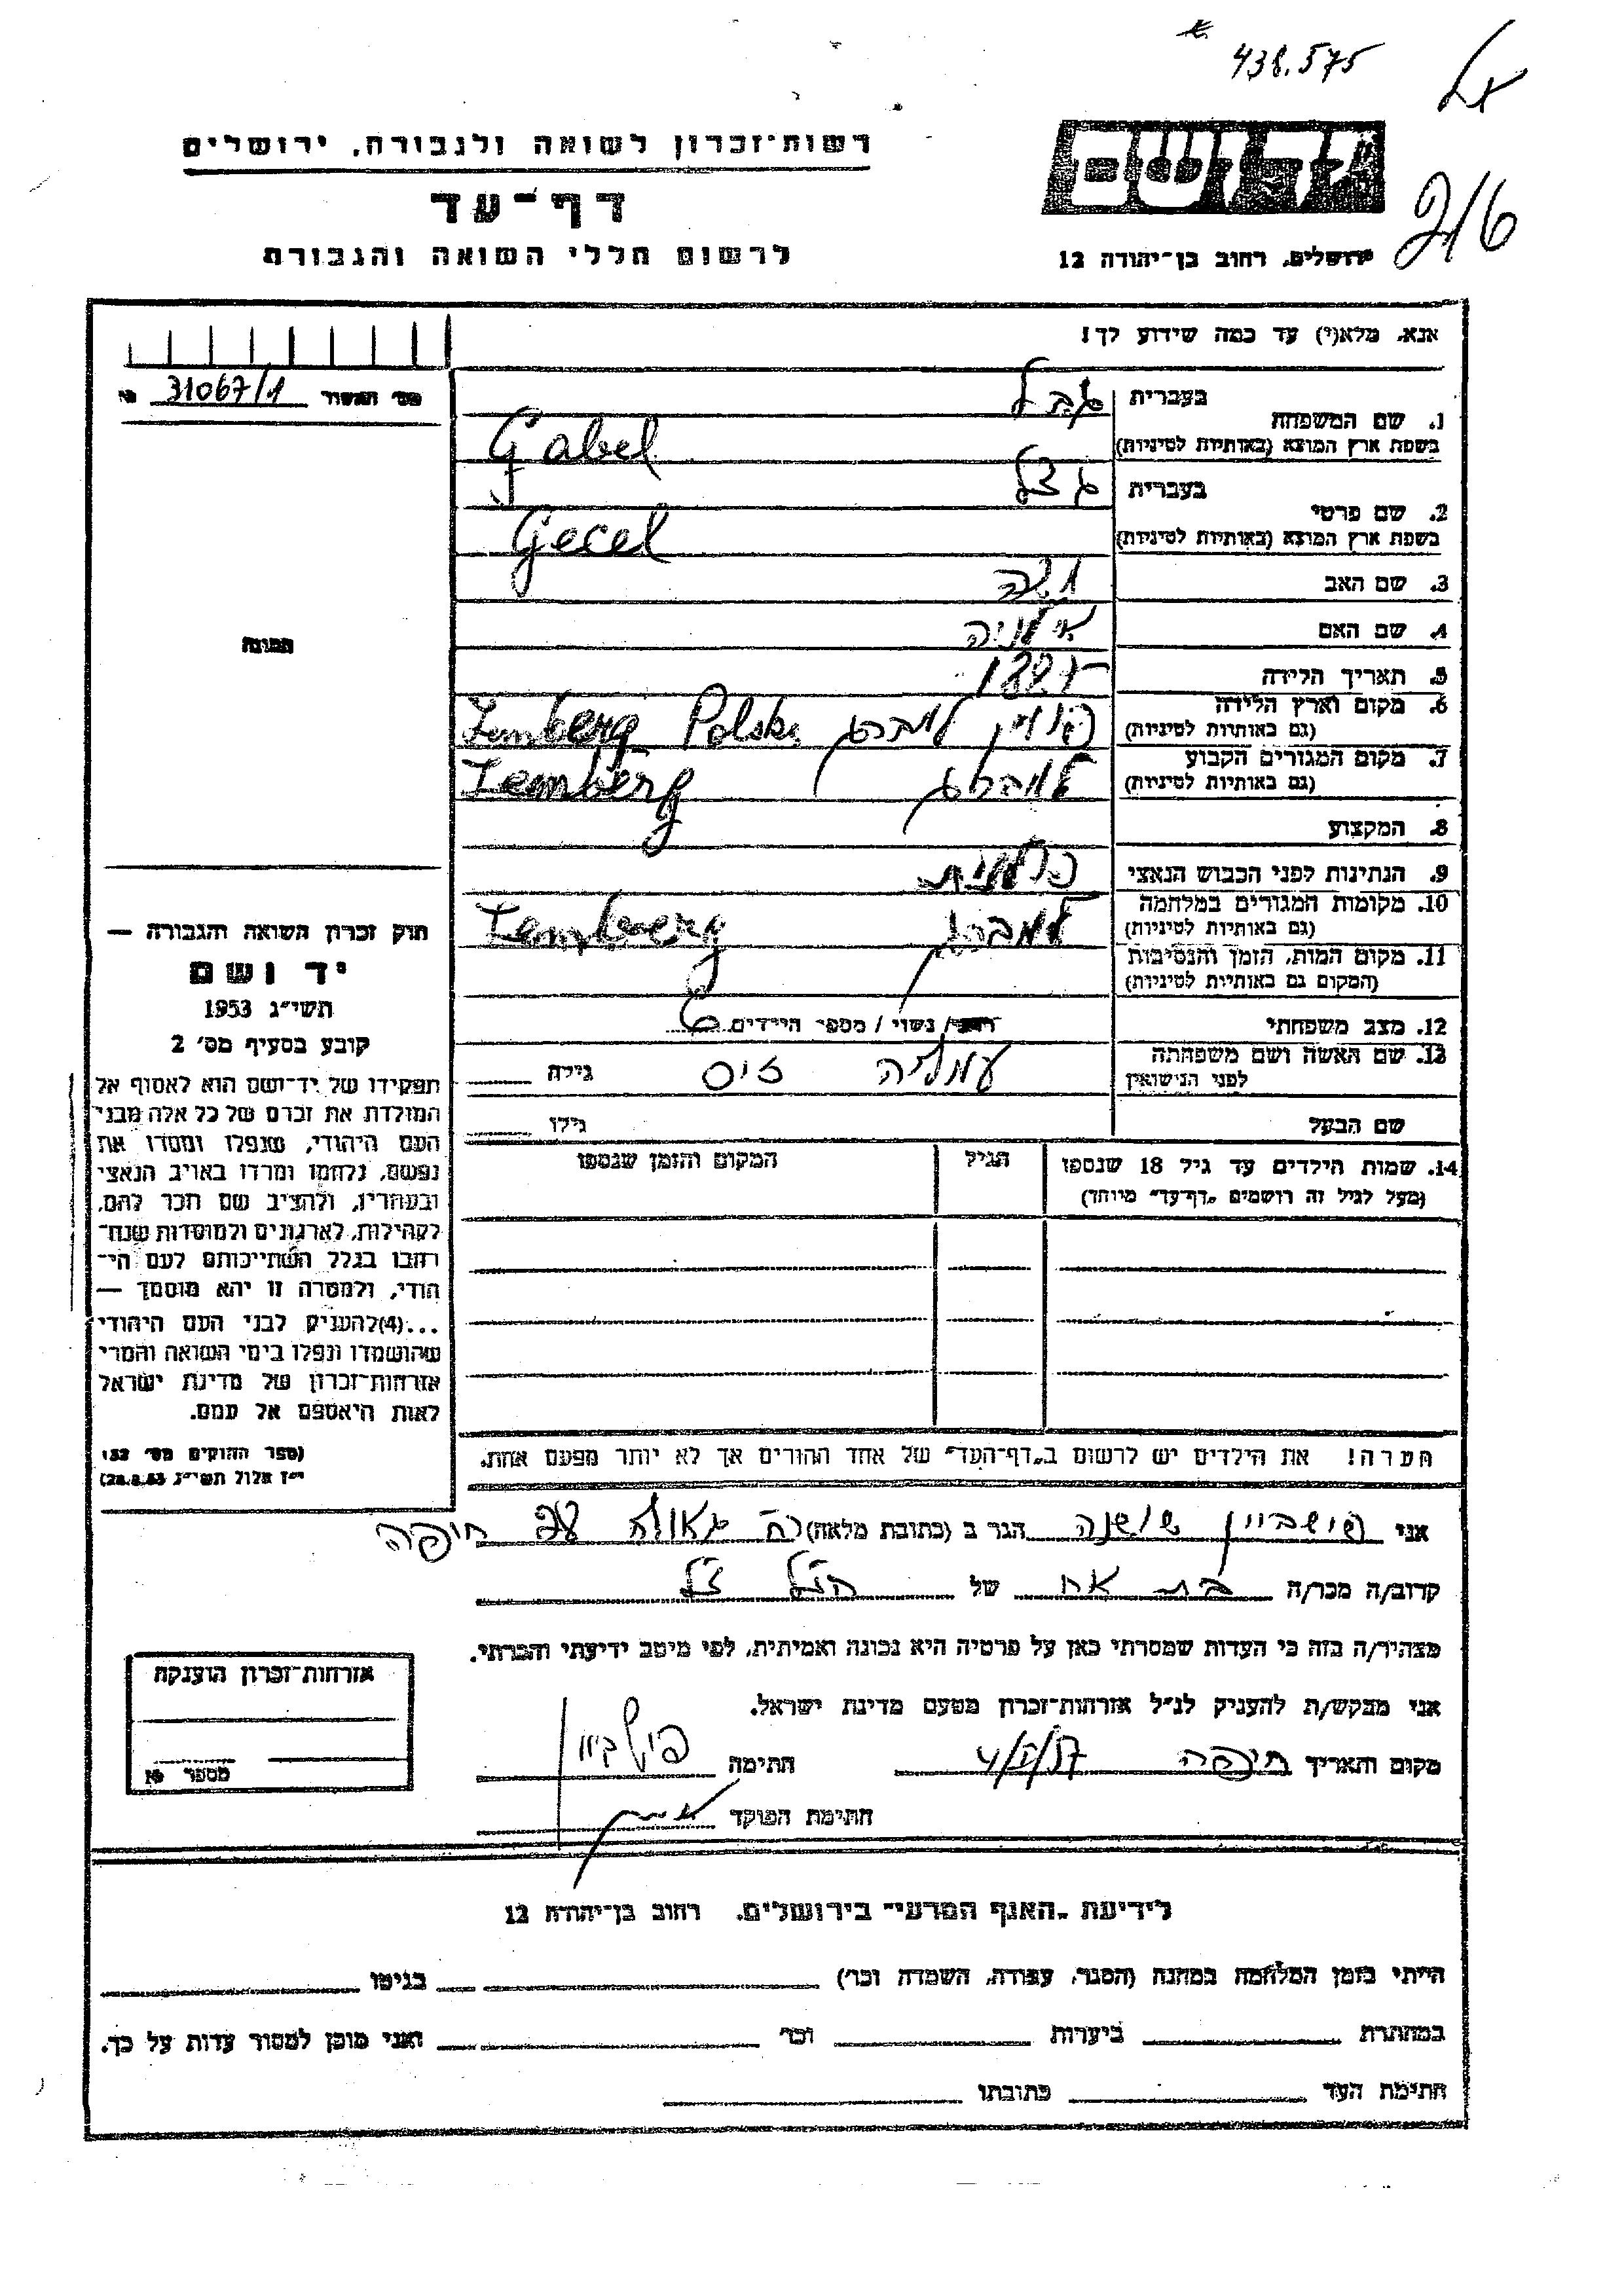 438.575
רשות־זכרון לשואה ולגבורה, ירושלים
דף־עד
לרשום חללי השואה והגבורה
ירושלים, רחוב בן־יהודה 12
216
אנא, מלא(י) עד כמה שידוע לך!
31067/1
1. שם המשפחה
בעברית גבל
בשפת ארץ המוצא (באותיות לטיניות) Gabel
2. שם פרטי
בעברית געצל
בשפת ארץ המוצא (באותיות לטיניות) Gecel
3. שם האב
4. שם האם
5. תאריך הלידה
6. מקום וארץ הלידה
(גם באותיות לטיניות) פולין למברג Lemberg Polska
7. מקום המגורים הקבוע
(גם באותיות לטיניות) למברג Lemberg
8. המקצוע
9. הנתינות לפני הכבוש הנאצי פולנית
10. מקומות המגורים במלחמה
(גם באותיות לטיניות) למברג Lemberg
11. מקום המות, הזמן והנסיבות
(המקום גם באותיות לטיניות)
12. מצב משפחתי רווק / נשוי / מספר הילדים 6
13. שם האשה ושם משפחתה
לפני הנישואין עמליה זיס גילה
שם הבעל גילו
14. שמות הילדים עד גיל 18 שנספו
(מעל לגיל זה רושמים „דף־עד" מיוחד)
הגיל
המקום והזמן שנספו
הערה! את הילדים יש לרשום ב„דף־העד" של אחד ההורים אך לא יותר מפעם אחת.
תמונה
חוק זכרון השואה והגבורה —
יד ושם
תשי"ג 1953
קובע בסעיף מס' 2
תפקידו של יד־ושם הוא לאסוף אל
המולדת את זכרם של כל אלה מבני
העם היהודי, שנפלו ומסרו את
נפשם, נלחמו ומרדו באויב הנאצי
ובעוזריו, ולהציב שם וזכר להם,
לקהילות, לארגונים ולמוסדות שנח־
רבו בגלל השתייכותם לעם הי־
הודי, ולמטרה זו יהא מוסמך —
...(4)להעניק לבני העם היהודי
שהושמדו ונפלו בימי השואה והמרי
אזרחות־זכרון של מדינת ישראל
לאות היאספם אל עמם.
(ספר החוקים מס' 132
י"ז אלול תשי"ג 28.8.53)
אני פישביין שושנה הגר ב (כתובת מלאה) רח גאולה חיפה
קרוב/ה מכר/ה בת אח של הנ"ל
מצהיר/ה בזה כי העדות שמסרתי כאן על פרטיה היא נכונה ואמיתית, לפי מיטב ידיעתי והכרתי.
אני מבקש/ת להעניק לנ"ל אזרחות־זכרון מטעם מדינת ישראל.
מקום ותאריך חיפה חתימה
חתימת הפוקד
אזרחות־זכרון הוענקה
מספר
לידיעת „האגף המדעי" בירושלים, רחוב בן־יהודה 12
הייתי בזמן המלחמה במחנה (הסגר, עבודה, השמדה וכו') בגיטו
במחתרת ביערות וכו' ואני מוכן למסור עדות על כך.
חתימת העד כתובתו